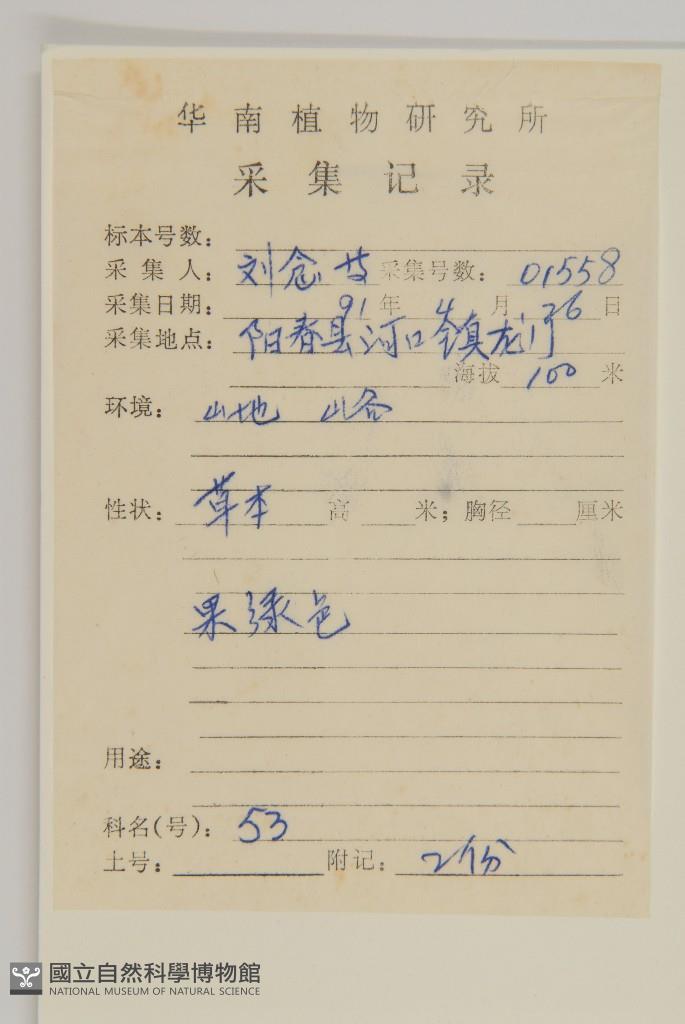 华南植物研究所
采集记录
标本号数：
采集人：刘念 采集号数：01558
采集日期：91年4月26日
采集地点：阳春县河口镇龙门
海拔100米
环境：山地 山谷
性状：草本 高 米；胸径 厘米
果绿色
用途：
科名(号)：53
土号： 附记：2份
國立自然科學博物館
NATIONAL MUSEUM OF NATURAL SCIENCE